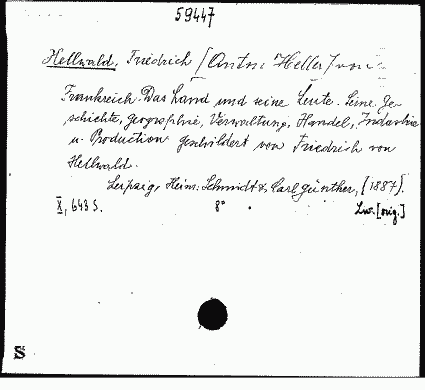 59447
Hellwald, Friedrich [Anton Heller] von
Frankreich. Das Land und seine Leute. Seine Ge-
schichte, Geographie, Verwaltung, Handel, Industrie
u. Production geschildert von Friedrich von
Hellwald.
Leipzig, Heinr. Schmidt & Carl Günther, [1887].
X, 643 S. 8° Lw. [orig.]
S